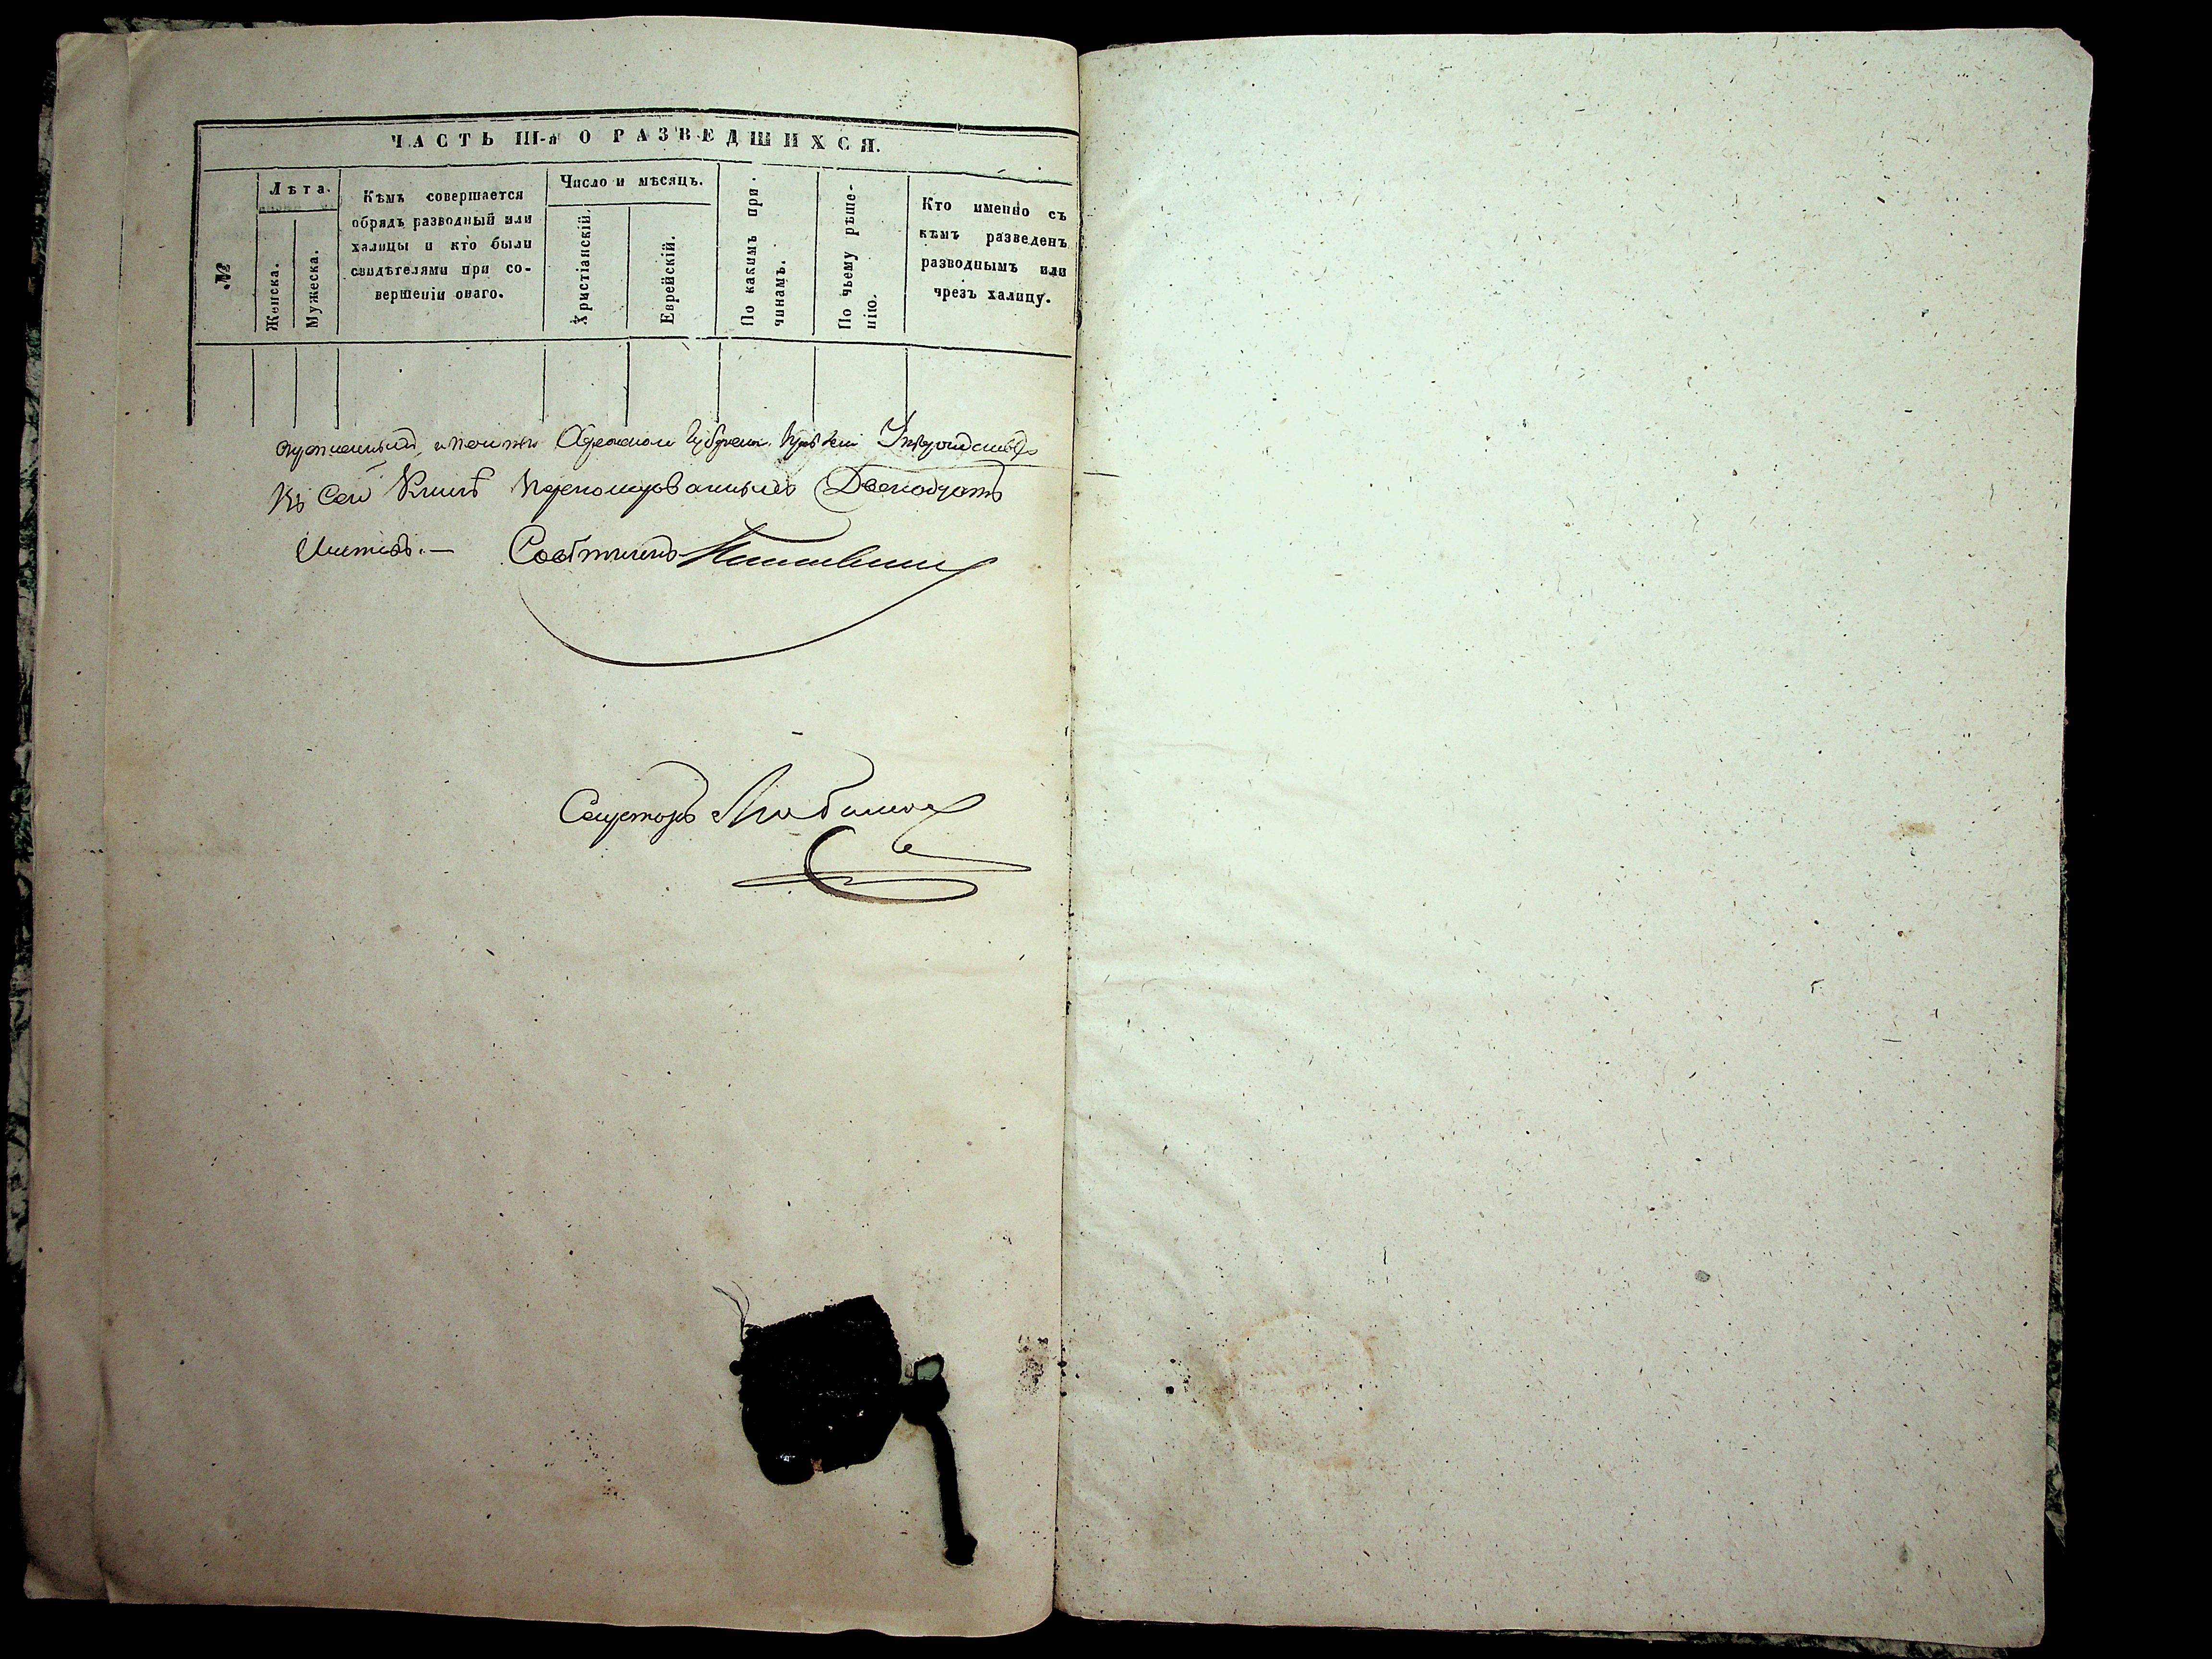 ЧАСТЬ III-я О РАЗВЕДШИХСЯ.
№
Лѣта.
Женска.
Мужеска.
Кѣмъ совершается
обрядъ разводный или
халицы и кто были
свидѣтелями при со-
вершеніи онаго.
Число и мѣсяцъ.
Христіанскій.
Еврейскій.
По какимъ при-
чинамъ.
По чьему рѣше-
нію.
Кто именно съ
кѣмъ разведенъ
разводнымъ или
чрезъ халицу.
Къ сей Книгѣ пронумерованныхъ Двенадцать
Листовъ. — Совѣтникъ
Секретарь